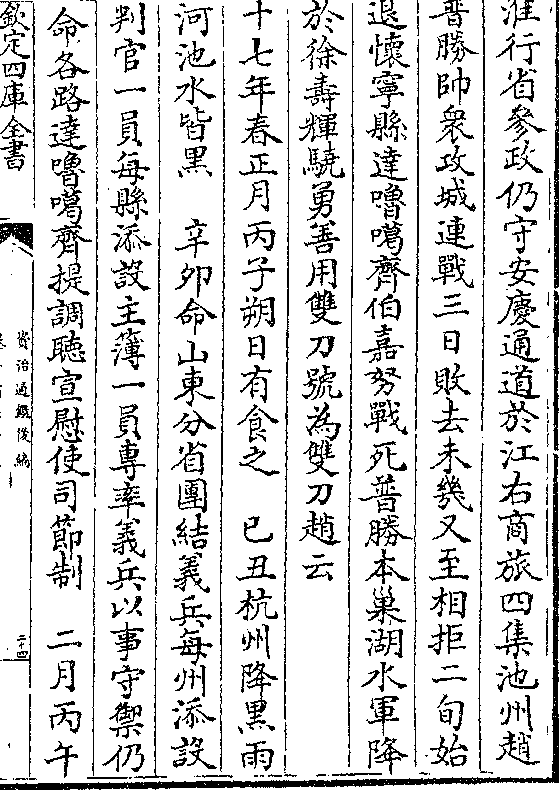 淮行省參政仍守安慶通道於江右商旅四集池州趙
普勝帥衆攻城連戰三日敗去未幾又至相拒二旬始
退懷寧縣達嚕噶齊伯嘉努戰死普勝本巢湖水軍降
於徐壽輝驍勇善用雙刀號為雙刀趙云
十七年春正月丙子朔日有食之　己丑杭州降黑雨
河池水皆黑　辛卯命山東分省團結義兵每州添設
判官一員每縣添設主簿一員專率義兵以事守禦仍
命各路達嚕噶齊提調聽宣慰使司節制　二月丙午
欽定四庫全書
資治通鑑後編
二十四